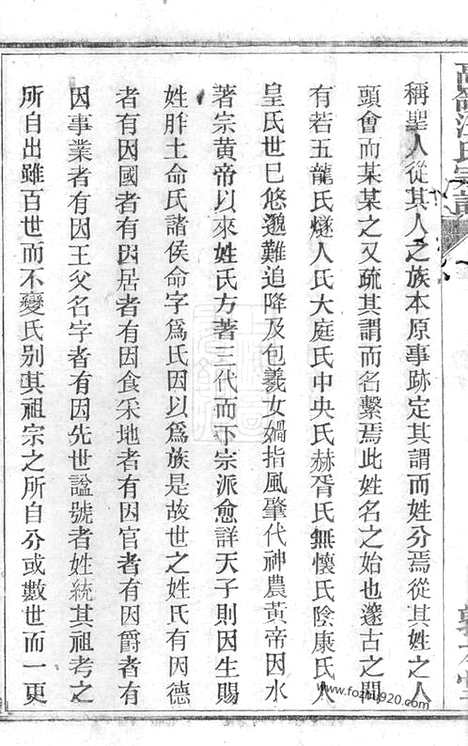 稱聖人從其人之族本原事跡定其謂而姓分焉從其姓之人
頭會而某某之又疏其謂而名繫焉此姓名之始也邃古之閒
有若五龍氏燧人氏大庭氏中央氏赫胥氏無懷氏陰康氏人
皇氏世巳悠邈難追降及包羲女媧指風肇代神農黃帝因水
著宗黃帝以來姓氏方著三代而下宗派愈詳天子則因生賜
姓胙土命氏諸侯命字爲氏因以爲族是故世之姓氏有因德
者有因國者有因居者有因食采地者有因官者有因爵者有
因事業者有因王父名字者有因先世諡號者姓統其祖考之
所自出雖百世而不變氏別其祖宗之所自分或數世而一更
www.fozhu920.com